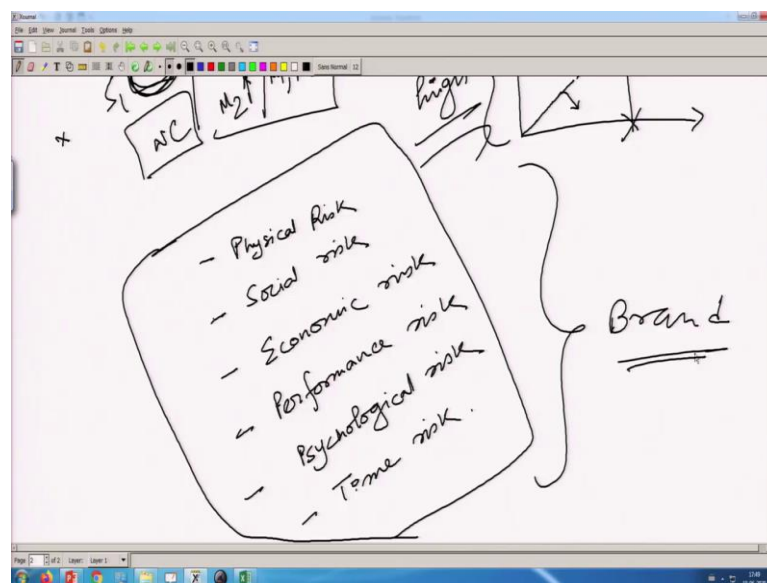 Xournal
File Edit View Journal Tools Options Help
Sans Normal 12
S1
M2
high
NC
- Physical Risk
- Social risk
- Economic risk
- Performance risk
- Psychological risk
- Time risk.
Brand
Page 2 of 2 Layer: Layer 1
17:49